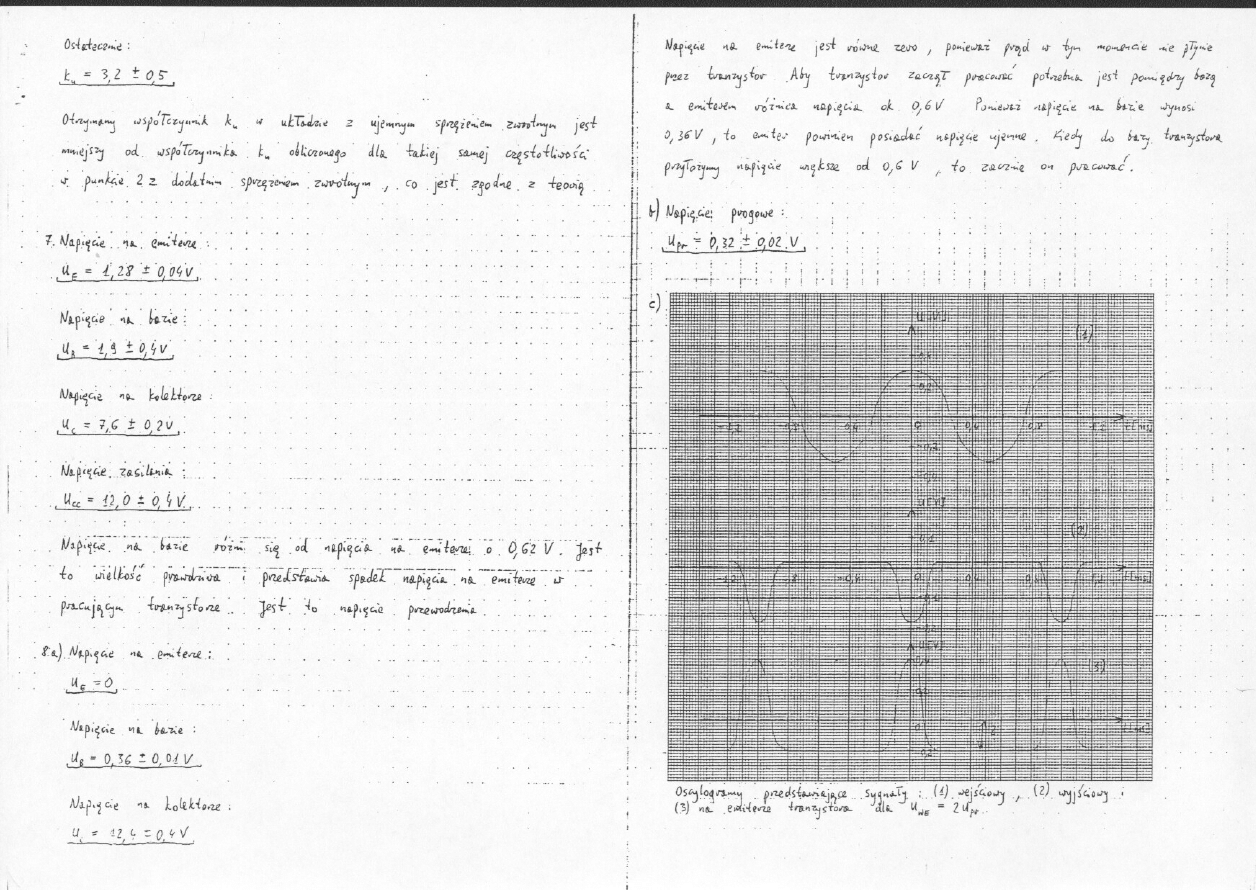 Ostatecznie:
ku = 3,2 ± 0,5
Otrzymany współczynnik ku w układzie z ujemnym sprzężeniem zwrotnym jest
mniejszy od współczynnika ku obliczonego dla takiej samej częstotliwości
w punkcie 2 z dodatnim sprzężeniem zwrotnym, co jest zgodne z teorią
7. Napięcie na emiterze:
UE = 1,28 ± 0,04V
Napięcie na bazie:
UB = 1,9 ± 0,4V
Napięcie na kolektorze:
Uc = 7,6 ± 0,2V
Napięcie zasilania:
Ucc = 12,0 ± 0,4V
Napięcie na bazie różni się od napięcia na emiterze o 0,62 V. Jest
to wielkość prawdziwa i przedstawia spadek napięcia na emiterze w
pracującym tranzystorze. Jest to napięcie przewodzenia
8.a) Napięcie na emiterze:
UE = 0
Napięcie na bazie:
UB = 0,36 ± 0,01V
Napięcie na kolektorze:
Uc = 12,4 ± 0,4V
Napięcie na emiterze jest równe zero, ponieważ prąd w tym momencie nie płynie
przez tranzystor. Aby tranzystor zaczął pracować potrzebna jest pomiędzy bazą
a emiterem różnica napięcia ok 0,6V Ponieważ napięcie na bazie wynosi
0,36V, to emiter powinien posiadać napięcie ujemne. Kiedy do bazy tranzystora
przyłożymy napięcie większe od 0,6 V, to zacznie on pracować.
b) Napięcie progowe:
Upr = 0,32 ± 0,02 V
c)
U[V]
(1)
0,4
0,2
-1,2 -0,8 -0,4 0 0,4 0,8 1,2 t[ms]
-0,2
U[V]
(2)
t[ms]
U[V]
(3)
t[ms]
Oscylogramy przedstawiające sygnały: (1) wejściowy, (2) wyjściowy i
(3) na emiterze tranzystora dla UWE = 2Upr